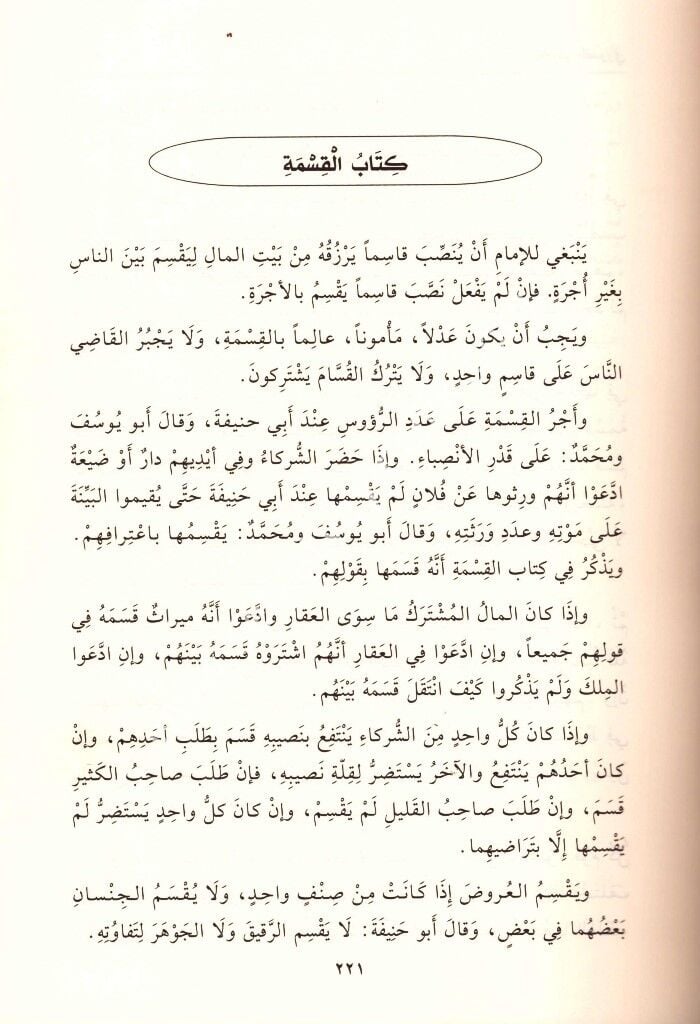 كِتَابُ الْقِسْمَةِ
يَنْبَغي للإمامِ أَنْ يُنَصِّبَ قاسِماً يَرْزُقُهُ مِنْ بَيْتِ المالِ لِيَقْسِمَ بَيْنَ الناسِ
بِغَيْرِ أُجْرَةٍ. فإنْ لَمْ يَفْعَلْ نَصَّبَ قاسِماً يَقْسِمُ بالأجْرَةِ.
ويَجِبُ أَنْ يكونَ عَدْلاً، مَأْموناً، عالِماً بالقِسْمَةِ، وَلَا يَجْبُرُ القَاضِي
النَّاسَ عَلَى قاسِمٍ واحِدٍ، وَلَا يَتْرُكُ القُسَّامَ يَشْتَرِكونَ.
وأَجْرُ القِسْمَةِ عَلَى عَدَدِ الرُّؤوسِ عِنْدَ أَبِي حنيفةَ، وَقالَ أبو يُوسُفَ
ومُحَمَّدٌ: عَلَى قَدْرِ الأنْصِباءِ. وإذَا حَضَرَ الشُّركاءُ وفِي أيْدِيهِمْ دارٌ أَوْ ضَيْعَةٌ
ادَّعَوْا أنَّهُمْ ورِثوها عَنْ فُلانٍ لَمْ يَقْسِمْها عِنْدَ أَبِي حَنِيفَةَ حَتَّى يُقيموا البَيِّنَةَ
عَلَى مَوْتِهِ وعدَدِ وَرَثَتِهِ، وَقالَ أبو يُوسُفَ ومُحَمَّدٌ: يَقْسِمُها باعْتِرافِهِمْ.
ويَذْكُرُ فِي كِتابِ القِسْمَةِ أنَّهُ قَسَمَها بِقَوْلِهِمْ.
وإذَا كانَ المالُ المُشْتَرَكُ مَا سِوَى العَقارِ وادَّعَوْا أنَّهُ ميراثٌ قَسَمَهُ فِي
قولِهِمْ جَميعاً، وإنِ ادَّعَوْا فِي العَقارِ أنَّهُمُ اشْتَرَوْهُ قَسَمَهُ بَيْنَهُمْ، وإنِ ادَّعَوا
المِلكَ وَلَمْ يَذْكُروا كَيْفَ انْتَقَلَ قَسَمَهُ بَيْنَهُم.
وإذَا كانَ كُلُّ واحِدٍ مِنَ الشُّركاءِ يَنْتَفِعُ بنَصيبِهِ قَسَمَ بِطَلَبِ أحَدِهِمْ، وإنْ
كانَ أحَدُهُمْ يَنْتَفِعُ والآخَرُ يَسْتَضِرُّ لِقِلّةِ نَصيبِهِ، فإنْ طَلَبَ صاحِبُ الكَثيرِ
قَسَمَ، وإنْ طَلَبَ صاحِبُ القَليلِ لَمْ يَقْسِمْ، وإنْ كانَ كلُّ واحِدٍ يَسْتَضِرُّ لَمْ
يَقْسِمْها إلَّا بتَرَاضيهِما.
ويَقْسِمُ العُروضَ إذَا كَانَتْ مِنْ صِنْفٍ واحِدٍ، وَلَا يُقْسَمُ الجِنْسانِ
بَعْضُهُما فِي بَعْضٍ، وَقالَ أبو حَنِيفَةَ: لَا يَقْسِم الرَّقيقَ وَلَا الجَوْهَرَ لِتَفاوُتِهِ.
٢٢١